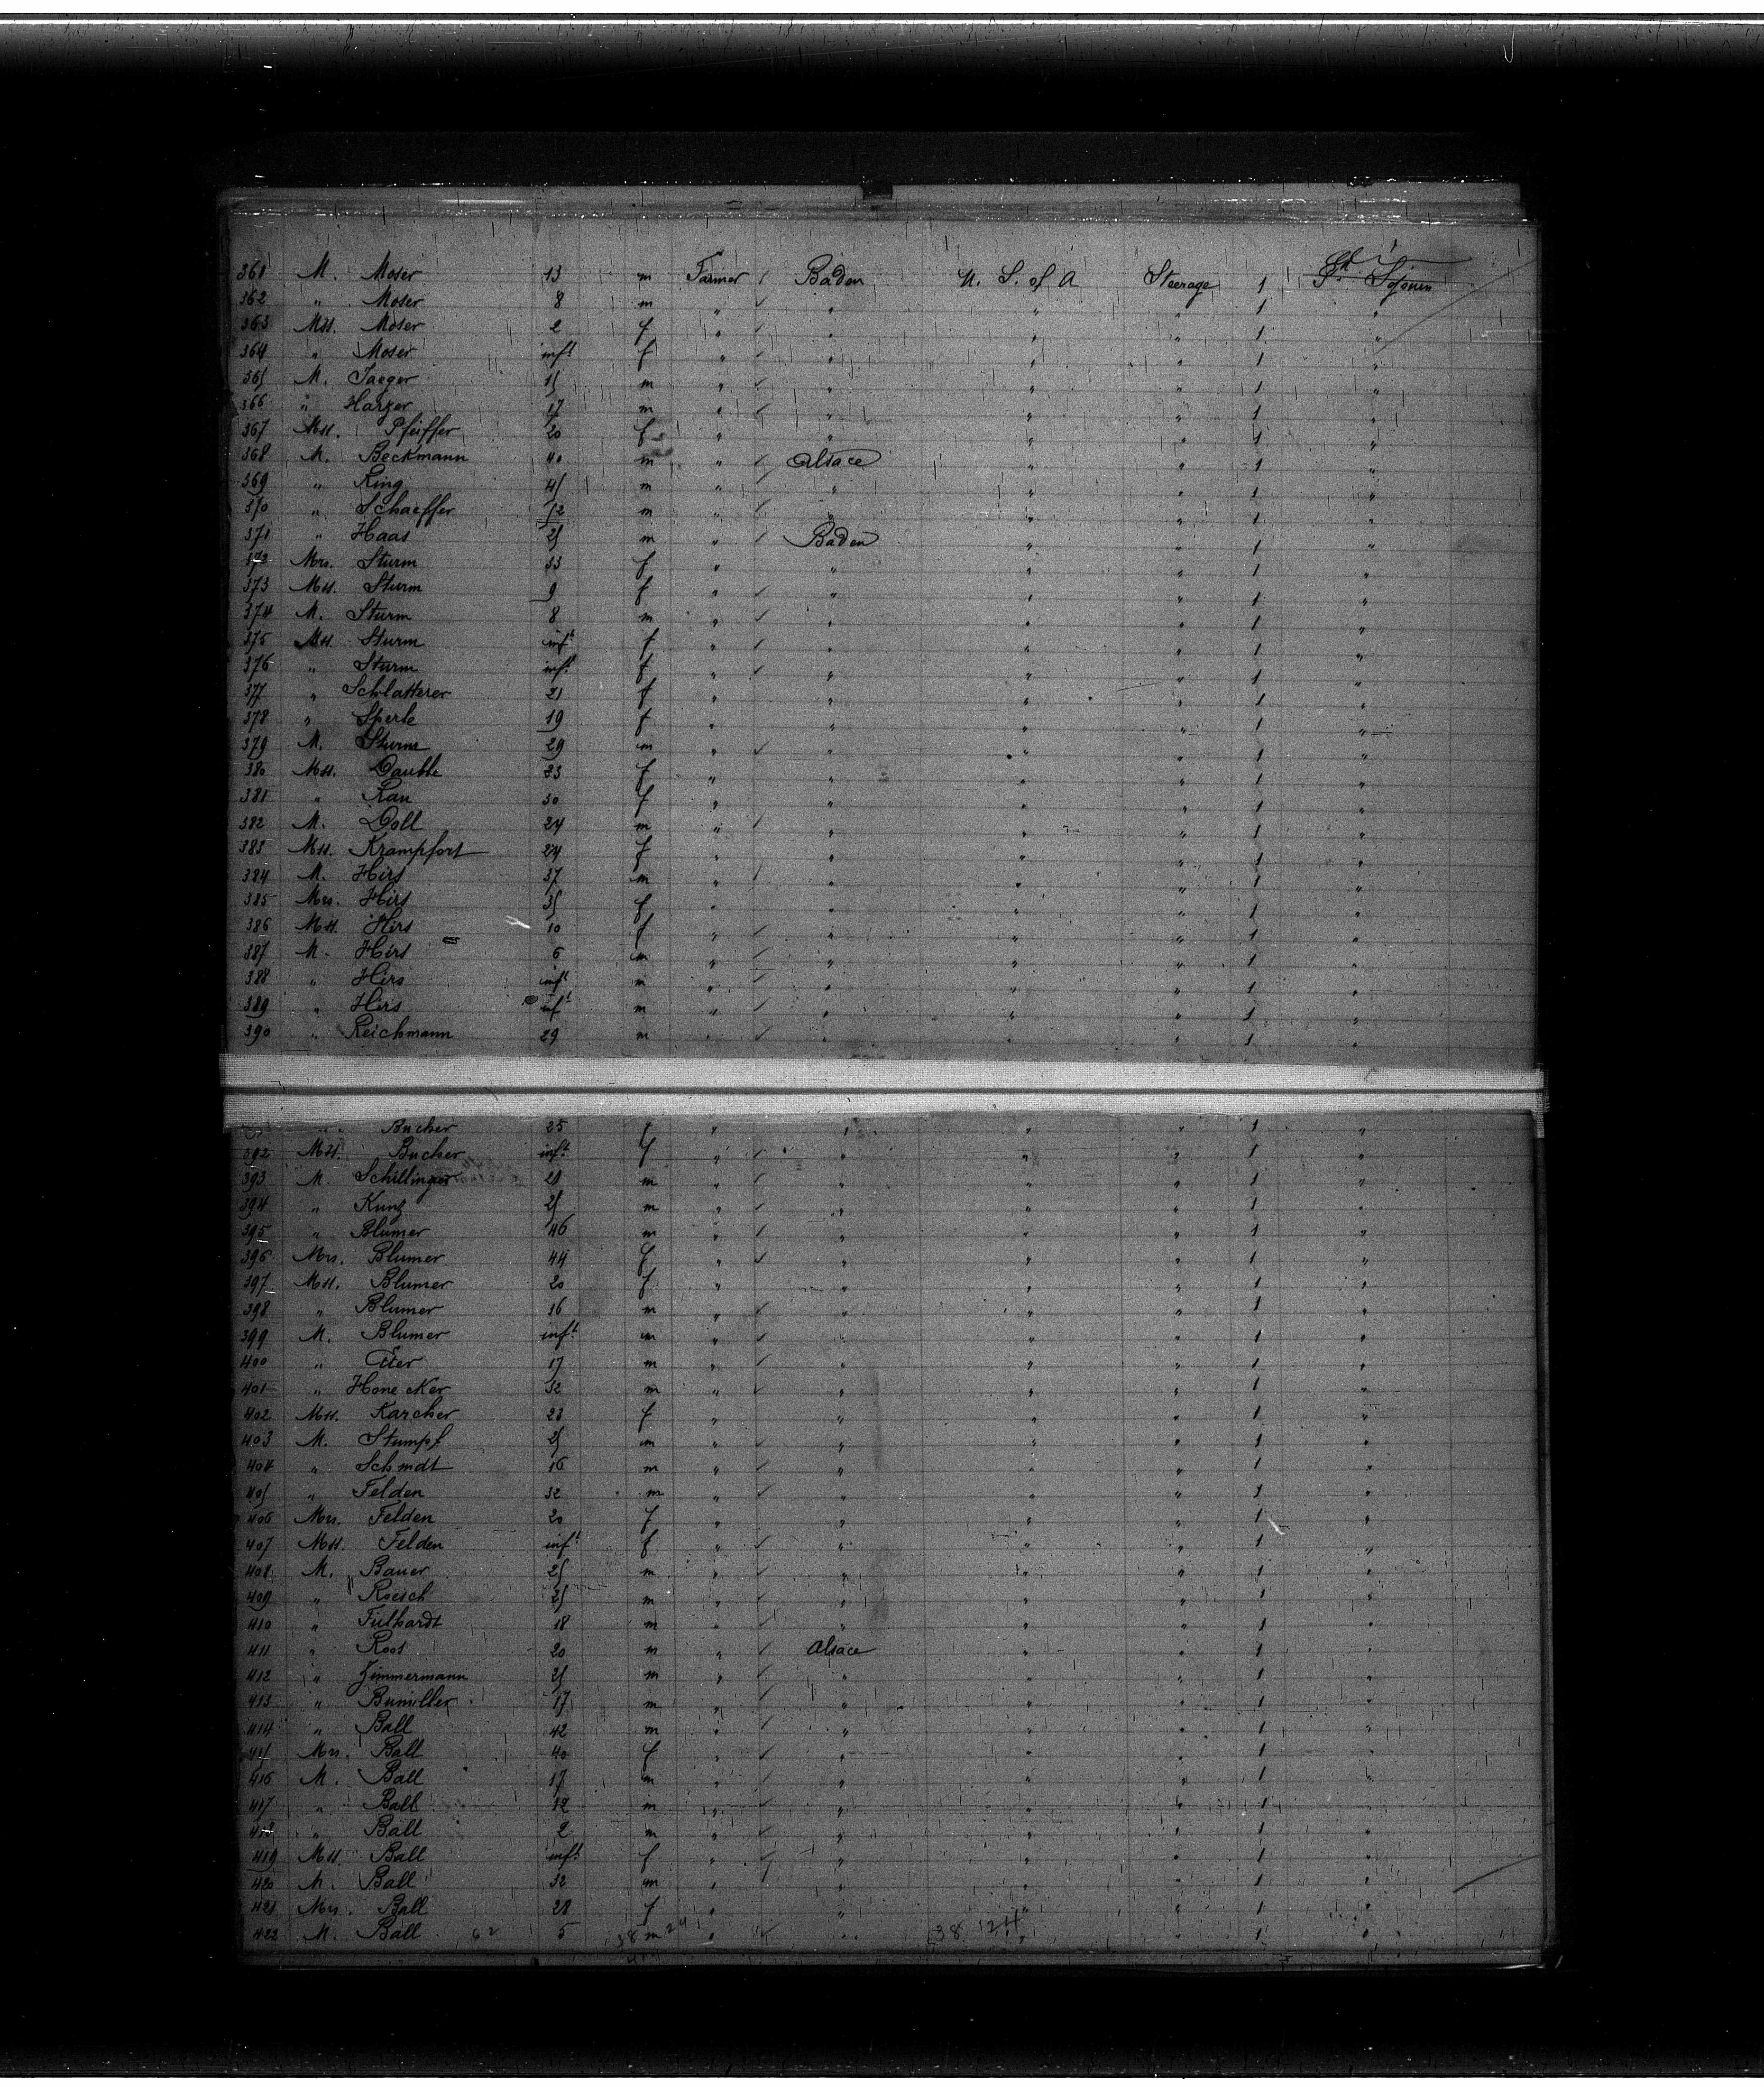 361 M. Moser 13 m Farmer Baden U. S. of A Steerage 1 Pt Sojourn
362 " Moser 8 m " " " " 1 "
363 Mss. Moser 2 f " " " " 1 "
364 " Moser inft f " " " " 1 "
365 M. Jaeger 15 m " " " " 1 "
366 " Harzer 17 m " " " " 1 "
367 Mss. Pfeiffer 20 f " " " " 1 "
368 M. Beckmann 40 m " Alsace " " 1 "
369 " King 45 m " " " " 1 "
370 " Schaeffer 52 m " " " " 1 "
371 " Haas 25 m " Baden " " 1 "
372 Mrs. Sturm 33 f " " " " 1 "
373 Mss. Sturm 9 f " " " " 1 "
374 M. Sturm 8 m " " " " 1 "
375 Mss. Sturm inft f " " " " 1 "
376 " Sturm inft f " " " " 1 "
377 " Schlatterer 21 f " " " " 1 "
378 " Sperle 19 f " " " " 1 "
379 M. Sturm 29 m " " " " 1 "
380 Mss. Dauble 23 f " " " " 1 "
381 " Rau 30 f " " " " 1 "
382 M. Doll 24 m " " " " 1 "
383 Mss. Krampfort 24 f " " " " 1 "
384 M. Hirs 37 m " " " " 1 "
385 Mrs. Hirs 35 f " " " " 1 "
386 Mss. Hirs 10 f " " " " 1 "
387 M. Hirs 6 m " " " " 1 "
388 " Hirs inft m " " " " 1 "
389 " Hirs inft m " " " " 1 "
390 " Reichmann 29 m " " " " 1 "
Bucher 25 f " " " " 1 "
392 Mss. Bucher inft f " " " " 1 "
393 M. Schillinger 21 m " " " " 1 "
394 " Kunz 25 m " " " " 1 "
395 " Blumer 46 m " " " " 1 "
396 Mrs. Blumer 44 f " " " " 1 "
397 Mss. Blumer 20 f " " " " 1 "
398 " Blumer 16 m " " " " 1 "
399 M. Blumer inft m " " " " 1 "
400 " 17 m " " " " 1 "
401 " Honecker 32 m " " " " 1 "
402 Mss. Karcher 23 f " " " " 1 "
403 M. Stumpf 25 m " " " " 1 "
404 " Schmdt 16 m " " " " 1 "
405 " Felden 32 m " " " " 1 "
406 Mrs. Felden 20 f " " " " 1 "
407 Mss. Felden inft f " " " " 1 "
408 M. Bauer 25 m " " " " 1 "
409 " Roesch 25 m " " " " 1 "
410 " Fulhardt 18 m " " " " 1 "
411 " Roos 20 m " Alsace " " 1 "
412 " Zimmermann 25 m " " " " 1 "
413 " Bumiller 17 m " " " " 1 "
414 " Ball 42 m " " " " 1 "
415 Mrs. Ball 40 f " " " " 1 "
416 M. Ball 17 m " " " " 1 "
417 " Ball 12 m " " " " 1 "
418 " Ball 2 m " " " " 1 "
419 Mss. Ball inft f " " " " 1 "
420 M. Ball 32 m " " " " 1 "
421 Mrs. Ball 28 f " " " " 1 "
422 M. Ball 62 5 38 m 24 " " 38 24 " 1 "